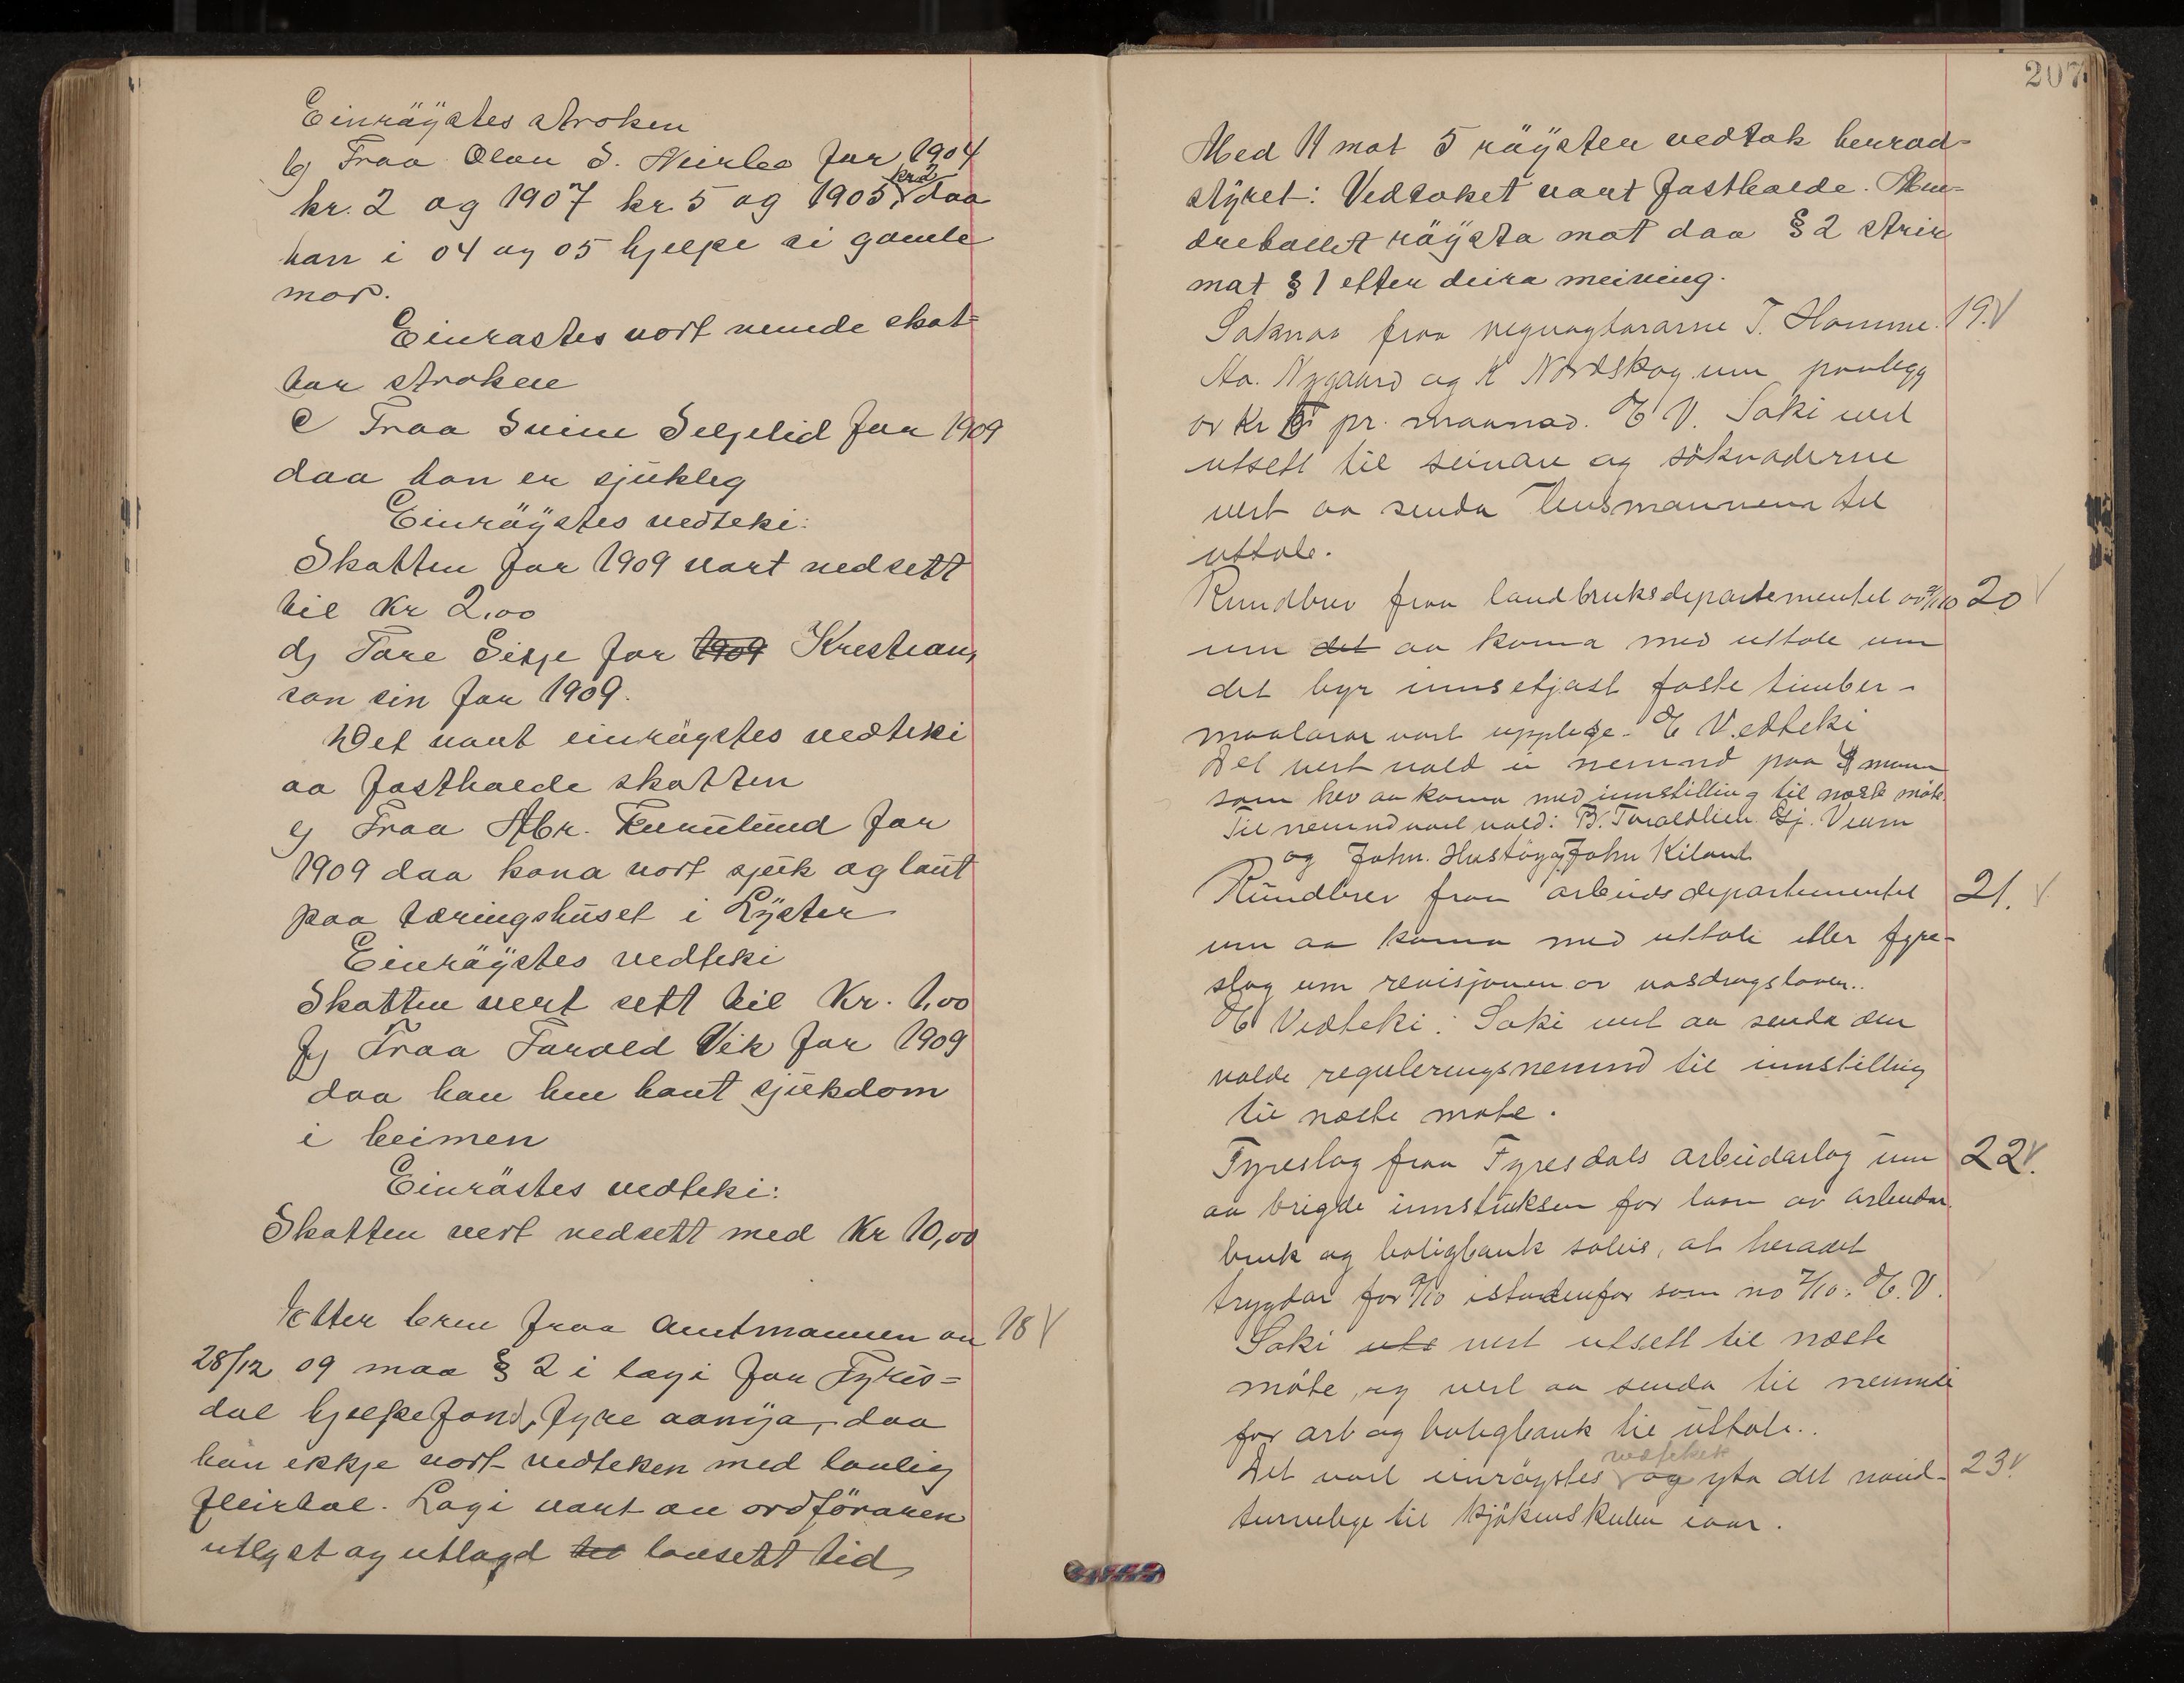 Einräystes stroken
b) Fraa Olav S. Veirleo for 1904
kr. 2 og 1907 kr. 5 og 1905 kr 2 daa
han i 04 og 05 hjelpe si gamle
mor.
Einrastes vort nemde skat-
tar strokne
c Fraa Svein Seljelid for 1909
daa han er sjukleg
Einräystes vedteki:
Skatten for 1909 vart nedsett
til Kr 2,00
d) Tore Sigje for 1909 Krestian,
son sin for 1909.
Det vart einräystes vedteki
aa fasthalde skatten
e) Fraa Abr. for
1909 daa kona vort sjuk og laut
paa tæringshuset i Lyster
Einräystes vedteki
Skatten vert sett til Kr. 1,00
f) Fraa Tarald Vik for 1909
daa han hev havt sjukdom
i heimen
Einrästes vedteki:
Skatten vert nedsett med Kr 10,00
Etter brev fraa amtmannen av 18 V
28/12 09 maa § 2 i lagi for Fyris-
dal hjelpefond, fyre aanya, daa
han ekkje vort vedteken med lovlig
fleirtal. Lagi vart av ordföraren
utlyst og utlagd til lovsett tid
207
Med 11 mot 5 räyster vedtok herad-
styret: Vedtoket vart fasthalde. Min-
dretallet räysta mot daa § 2 strir
mot § 1 etter deira meining.
Soknad fraa vegvaktararne T. Homme. 19. V
Aa. Nygaard og K Nordskog um paalegg
av kr 5 pr. maanad. E V. Saki vert
utsett til seinare og söknaderne
vert aa senda lensmannenn til
uttale.
Rundbrev fraa landbruksdepartementet av 20 V
um det aa koma med uttale um
det byr innsetjast faste timber-
maalarar vart upplese. E Vedteki
Det vert vald ei nemnd paa 4 mann
som hev aa koma med innstilling til næste möte.
Til nemnd vart vald: B. Taraldlien Gj. Veum
og John. Hustöyg, John Kiland
Rundbrev fraa arbeidsdepartementet 21. V
um aa koma med uttale eller fyre-
slag um revisjonen av vasdragsloven..
E Vedteki: Saki vert aa senda den
valde reguleringsnemnd til innstilling
til næste möte.
Fyreslag fraa Fyresdals arbeidarlag um 22 V.
aa brigde innstruksen for laan av arbeidar
bruk og boligbank soleis, at heradet
trygdar for 9/10 istadenfor som no 7/10. E. V.
Saki uts vert utsett til næste
möte, og vert aa senda til nemndi
for arb og boligbank til uttale..
vedteket
Det vart einröystes og yta det naud- 23 V
turvelege til kjökenskulen iaar.